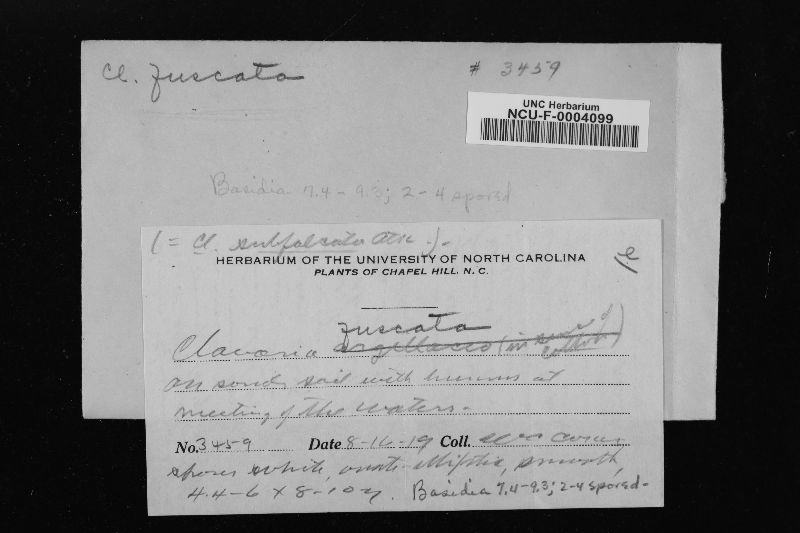 Cl. fuscata # 3459
UNC Herbarium
NCU-F-0004099
Basidia 7.4-9.3; 2-4 spored
(= Cl. subfalcata Atk.).
HERBARIUM OF THE UNIVERSITY OF NORTH CAROLINA
PLANTS OF CHAPEL HILL, N. C.
fuscata
Clavaria argillacea (in sense of
on sandy soil with humus at
meeting of the waters.
No. 3459 Date 8-16-19 Coll.
spores white, ovate-elliptic, smooth,
4.4-6 x 8-10 µ. Basidia 7.4-9.3; 2-4 spored.